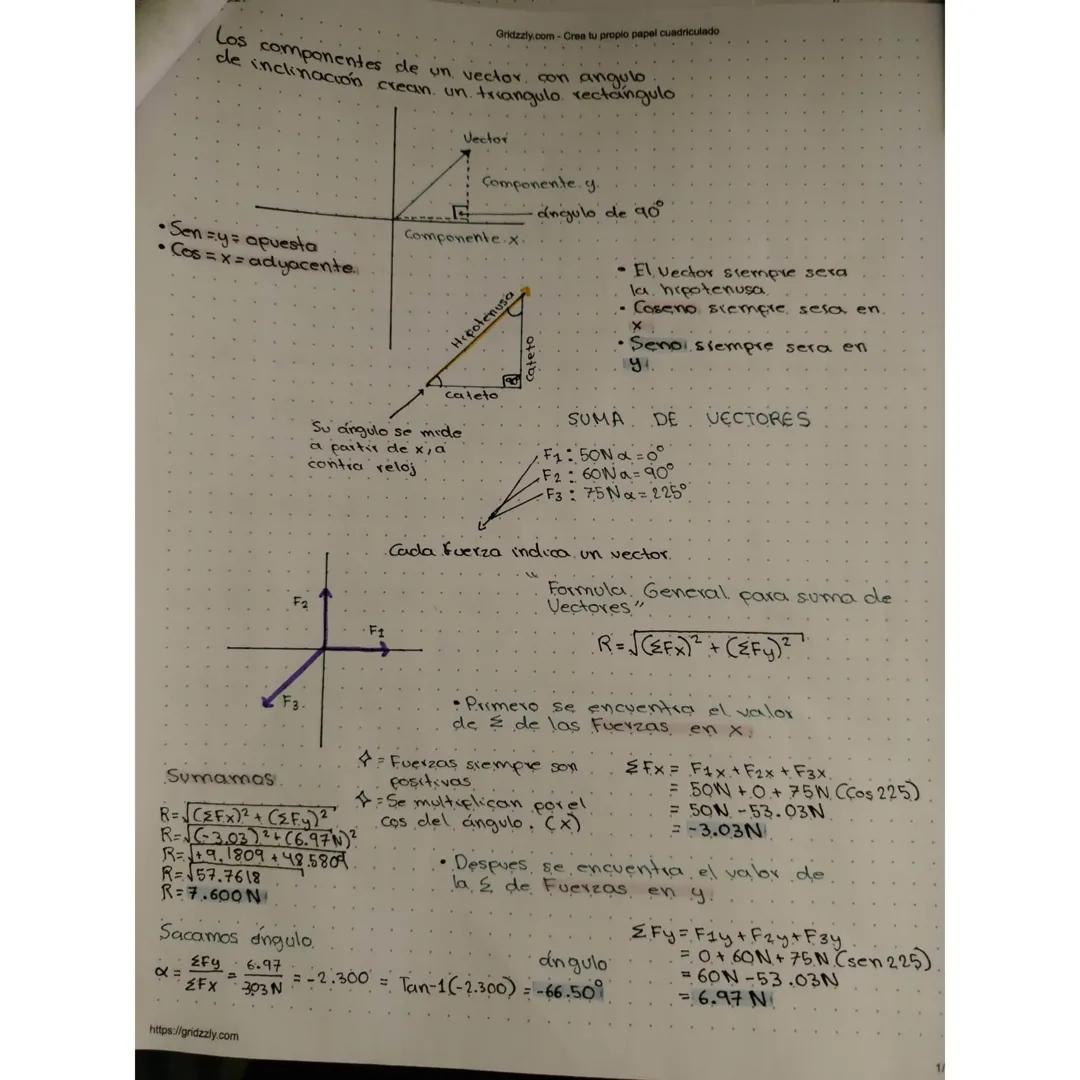 Gridzzly.com - Crea tu propio papel cuadriculado
Los componentes de un vector con angulo
de inclinación crean un triangulo rectángulo
Vector
Componente y
ángulo de 90°
Componente x
• Sen = y = opuesta
• Cos = x = adyacente
• El vector siempre sera
la hipotenusa
• Coseno siempre sera en
x
• Seno siempre sera en
y
Hipotenusa
cateto
90
cateto
Su ángulo se mide
a partir de x, a
contra reloj
SUMA DE VECTORES
F1: 50N α = 0°
F2: 60N α = 90°
F3: 75N α = 225°
Cada fuerza indica un vector.
"Formula General para suma de
Vectores"
R = √(ΣFx)² + (ΣFy)²
F2
F1
F3
• Primero se encuentra el valor
de Σ de las Fuerzas en x.
✧ = Fuerzas siempre son
positivas
✧ = Se multiplican por el
cos del ángulo. (x)
ΣFx = F1x + F2x + F3x
= 50N + 0 + 75N (Cos 225)
= 50N - 53.03N
= -3.03N
Sumamos
R = √(ΣFx)² + (ΣFy)²
R = √(-3.03)² + (6.97N)²
R = √+9.1809 + 48.5809
R = √57.7618
R = 7.600N
• Despues se encuentra el valor de
la Σ de Fuerzas en y.
ΣFy = F1y + F2y + F3y
= 0 + 60N + 75N (sen 225)
= 60N - 53.03N
= 6.97N
Sacamos ángulo
ángulo
α = ΣFy/ΣFx = 6.97/3.03N = -2.300 = Tan-1(-2.300) = -66.50°
https://gridzzly.com
1/